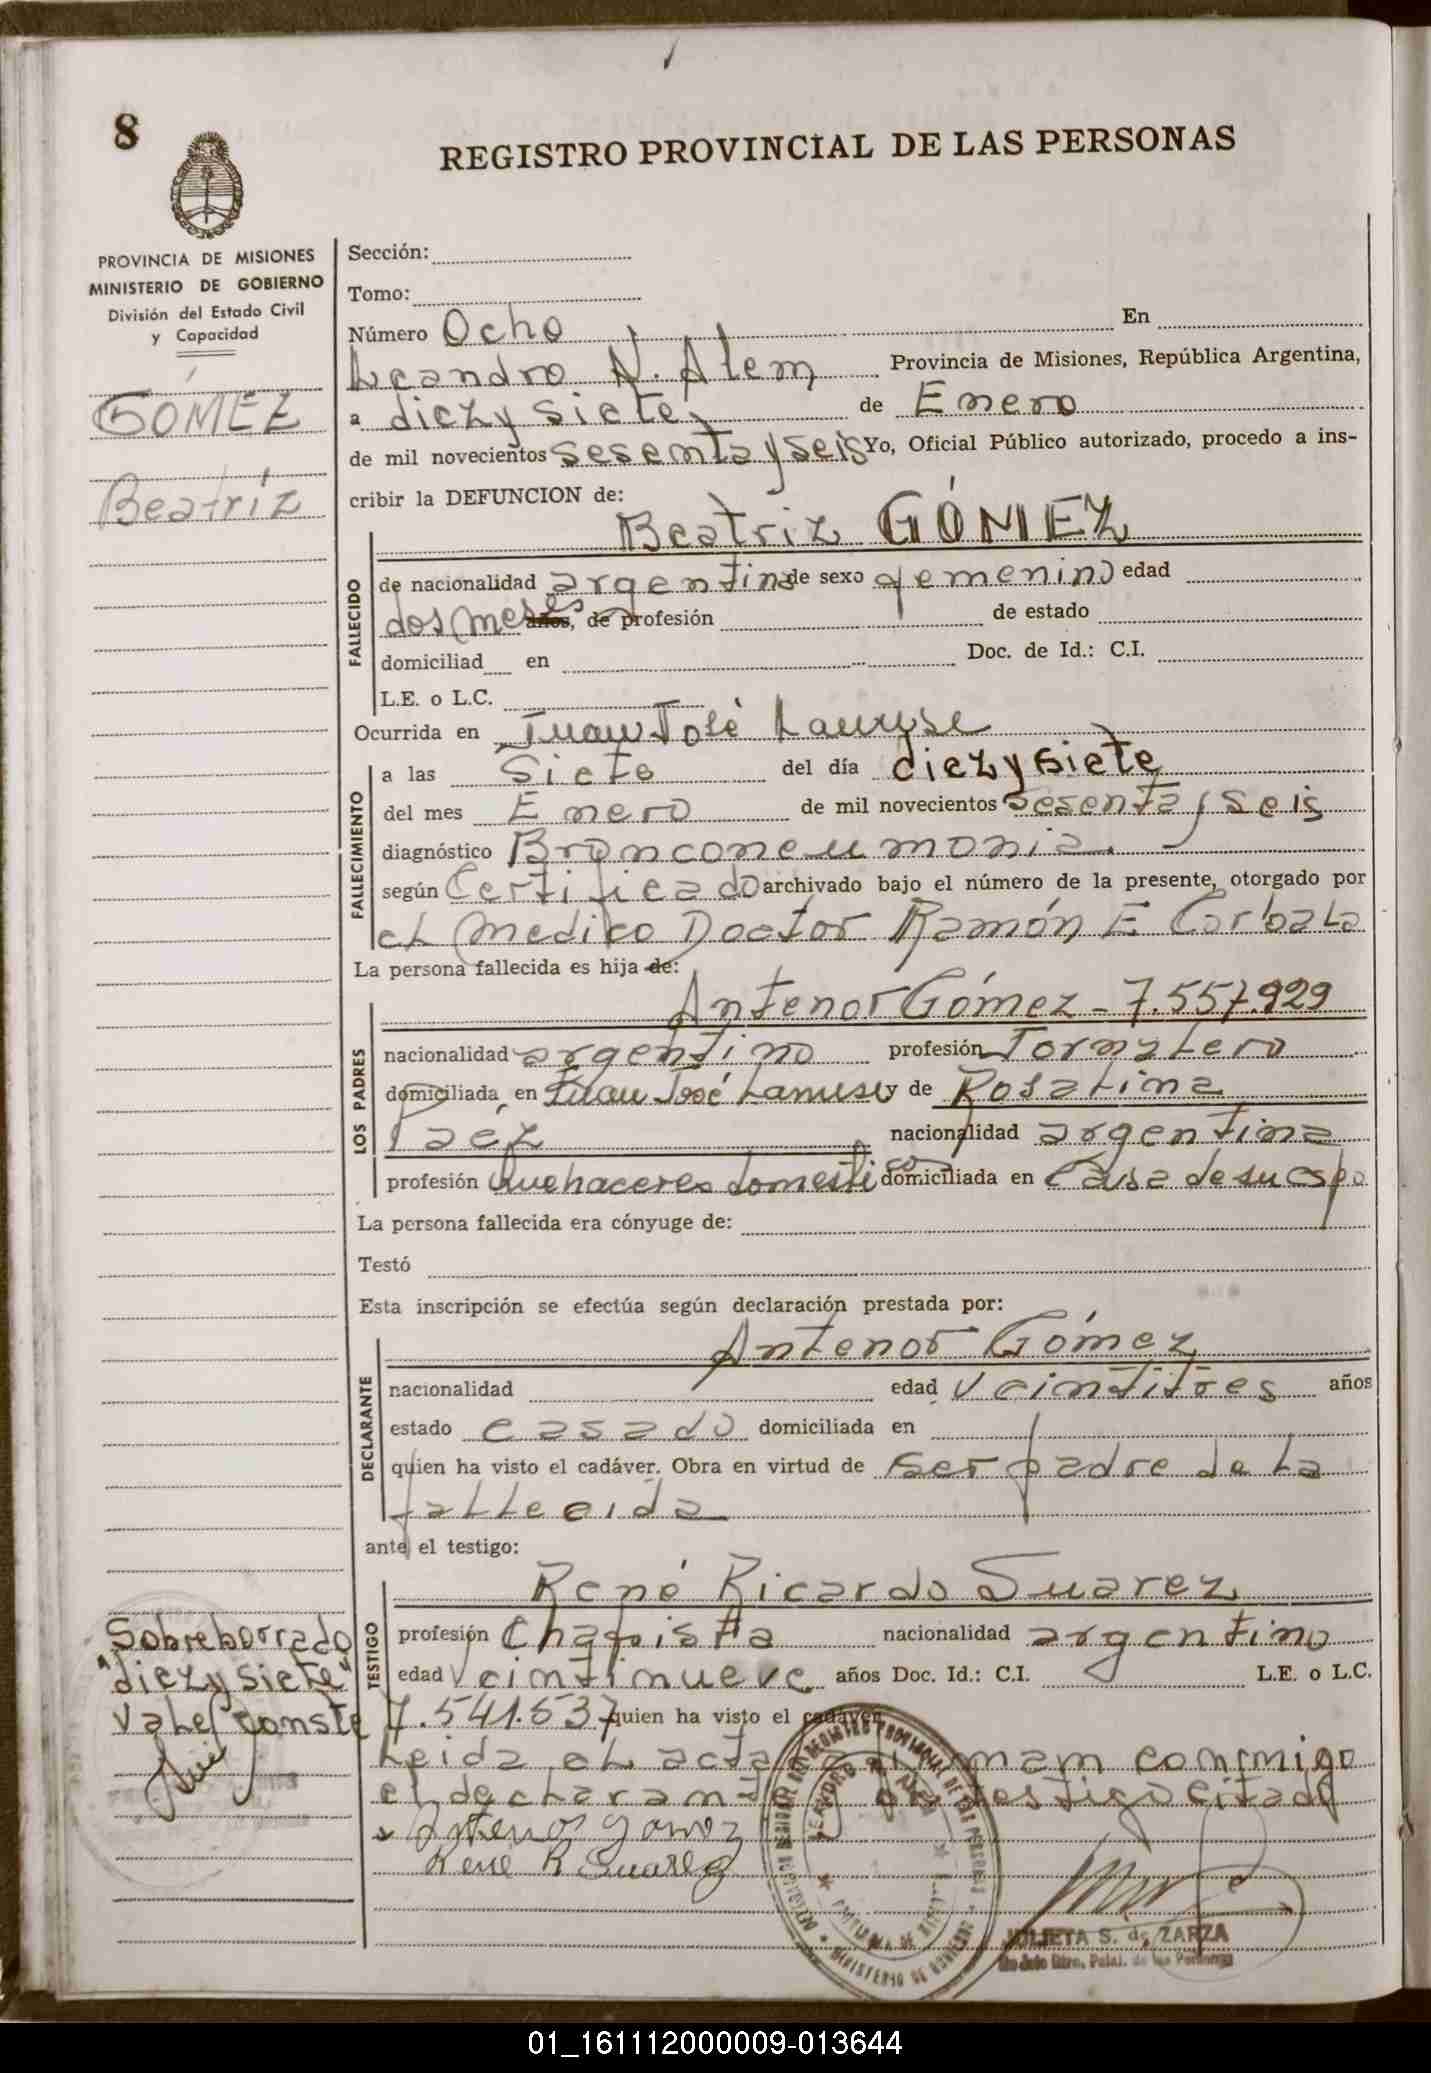 8
REGISTRO PROVINCIAL DE LAS PERSONAS
PROVINCIA DE MISIONES
MINISTERIO DE GOBIERNO
División del Estado Civil
y Capacidad
GOMEZ
Beatríz
Sección:
Tomo:
Número Ocho En
Leandro N. Alem Provincia de Misiones, República Argentina,
a diez y siete de Enero
de mil novecientos sesenta y seis Yo, Oficial Público autorizado, procedo a ins-
cribir la DEFUNCION de:
Beatriz GÓMEZ
FALLECIDO
de nacionalidad argentina de sexo femenino edad
dos meses años, de profesión de estado
domiciliad en Doc. de Id.: C.I.
L.E. o L.C.
Ocurrida en Juan José Lanusse
FALLECIMIENTO
a las Siete del día diez y siete
del mes Enero de mil novecientos sesenta y seis
diagnóstico Bronconeumonia.
según Certificado archivado bajo el número de la presente, otorgado por
el Medico Doctor Ramón E. Carbala
La persona fallecida es hija de:
LOS PADRES
Antenor Gómez - 7.557.929
nacionalidad argentino profesión Jornalero
domiciliada en Juan José Lanusse y de Rosalina
Paéz nacionalidad argentina
profesión Quehaceres domestico domiciliada en Casa de su espo
La persona fallecida era cónyuge de:
Testó
Esta inscripción se efectúa según declaración prestada por:
DECLARANTE
Antenor Gómez
nacionalidad edad Veintitres años
estado casado domiciliada en
quien ha visto el cadáver. Obra en virtud de ser padre de la
fallecida
ante el testigo:
TESTIGO
René Ricardo Suarez
profesión Chapista nacionalidad argentino
edad Veintinueve años Doc. Id.: C.I. L.E. o L.C.
7.541.537 quien ha visto el cadáver.
Leida el acta firmam conmigo
el declarante testigo citado
Antenor Gomez
René R Suarez
Sobreborrado
"diez y siete"
Vale Conste
JULIETA S. de ZARZA
01_161112000009-013644